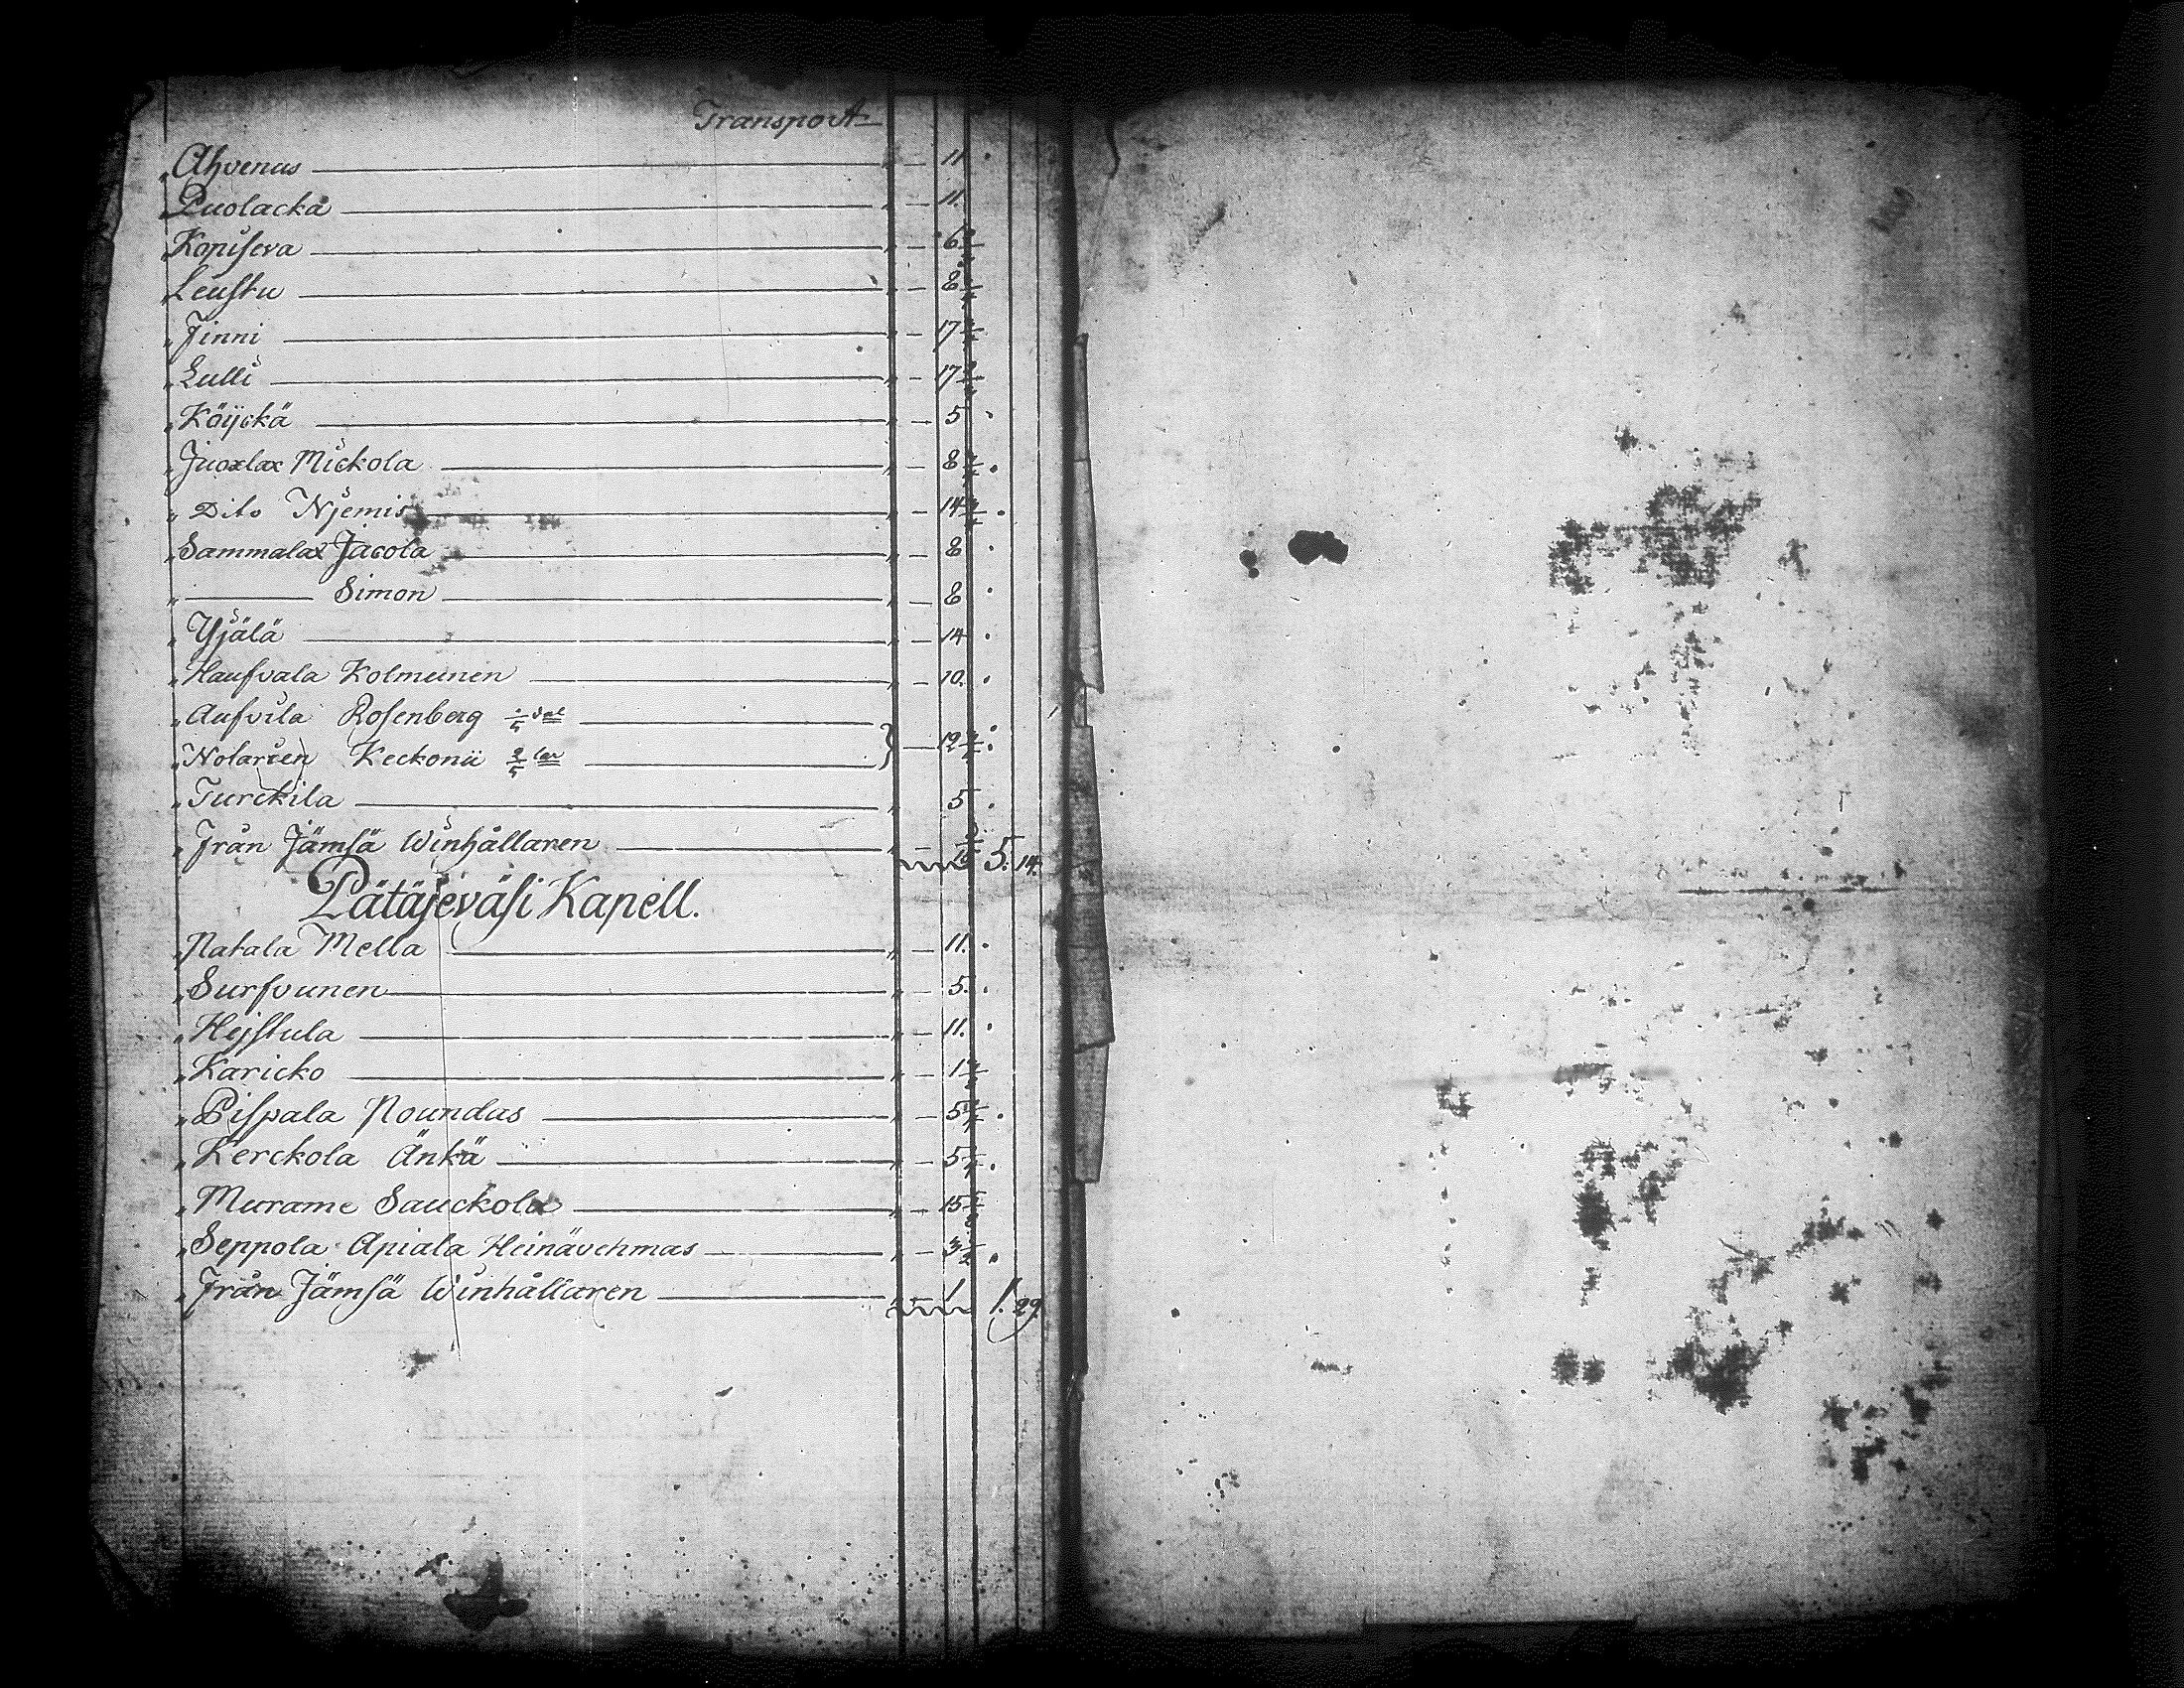 Transport
„ Ahvenus — 11.
„ Puolacka — 11.
„ Kopiseva — 6
„ Leustu — 8
„ Jinni — 17
„ Lulli — 17
„ Köijckä — 5.
„ Juoxlax Mickola — 8
„ Dito Njemis — 14
„ Sammalax Jacola — 8.
„ — Simon — 8.
„ Yjälä — 14.
„ Haufvala Kolmunen — 10.
„ Aufvila Rosenberg
„ Notarien Keckonii — 12
„ Turckila 5.
„ Från Jämsä Winhållaren — 5. 14.
Pätäjeväsi Kapell.
„ Natala Mella — 11.
„ Surfvunen — 5.
„ Hejstula — 11.
„ Karicko — 1
„ Pispala Noundas — 5
„ Kerckola Änkä — 5
„ Murame Sauckola — 15
„ Seppola Apiala Heinävehmas — 3
„ Från Jämsä Winhållaren — 1 1. 29.